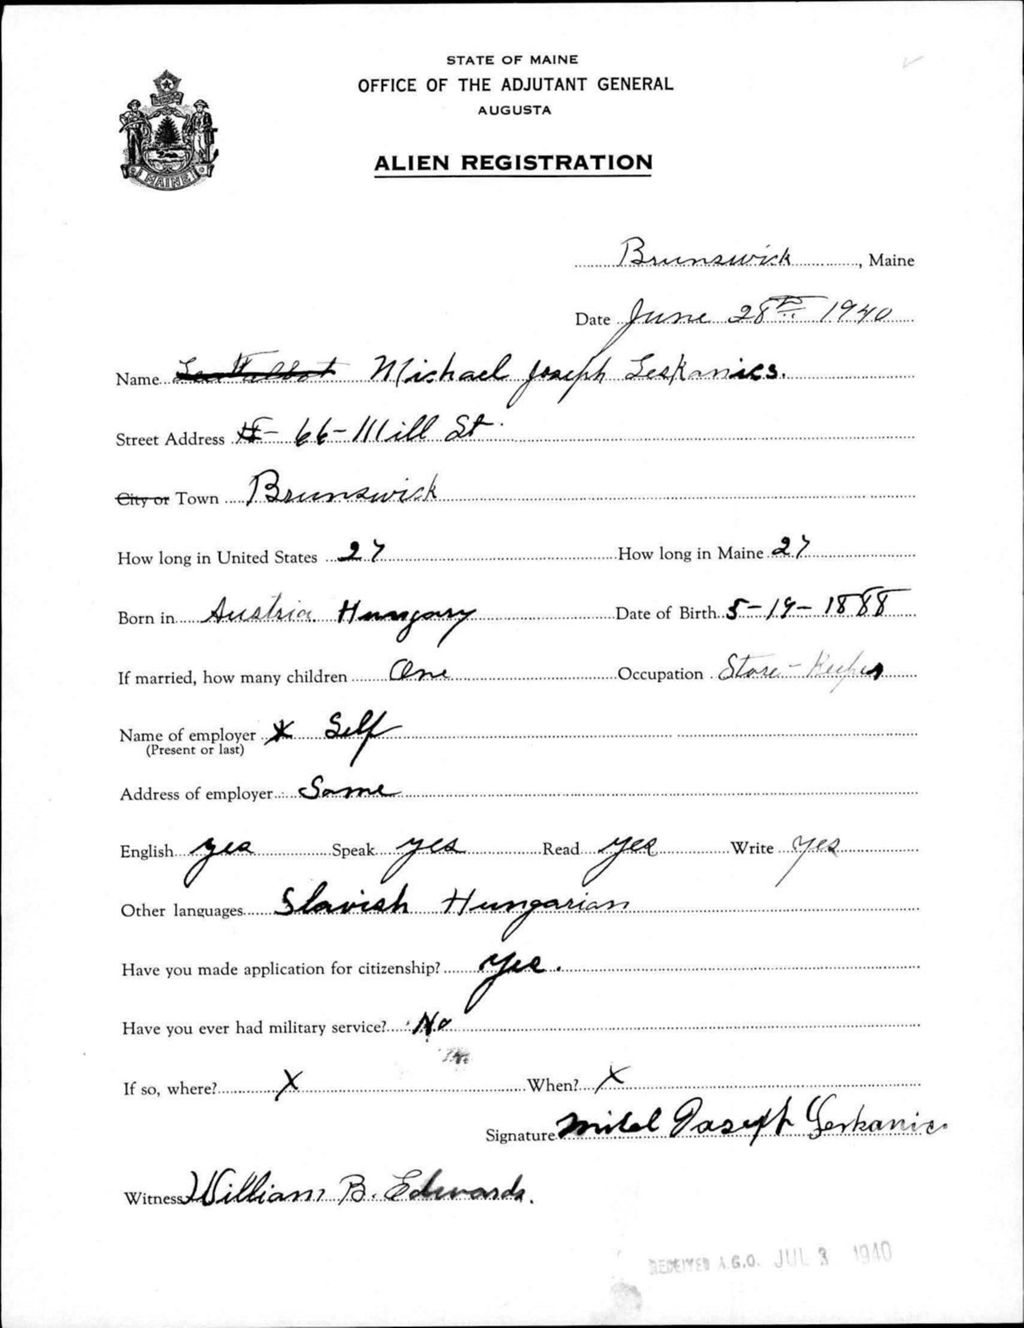 STATE OF MAINE
OFFICE OF THE ADJUTANT GENERAL
AUGUSTA
ALIEN REGISTRATION
MAINE
Brunswick, Maine
Date June 28th 1940
Name Michael Joseph Leskanics.
Street Address #- 66-Mill St.
City or Town Brunswick
How long in United States 27 How long in Maine 27
Born in Austria Hungary Date of Birth 5-19-1888
If married, how many children One Occupation Store-Keeper
Name of employer X Self
(Present or last)
Address of employer Same
English yes Speak yes Read yes Write yes
Other languages Slavish Hungarian
Have you made application for citizenship? Yes.
Have you ever had military service? No
If so, where? X When? X
Signature Joseph
Witness William B. Edwards.
RECEIVED A.G.O. JUL 3 1940